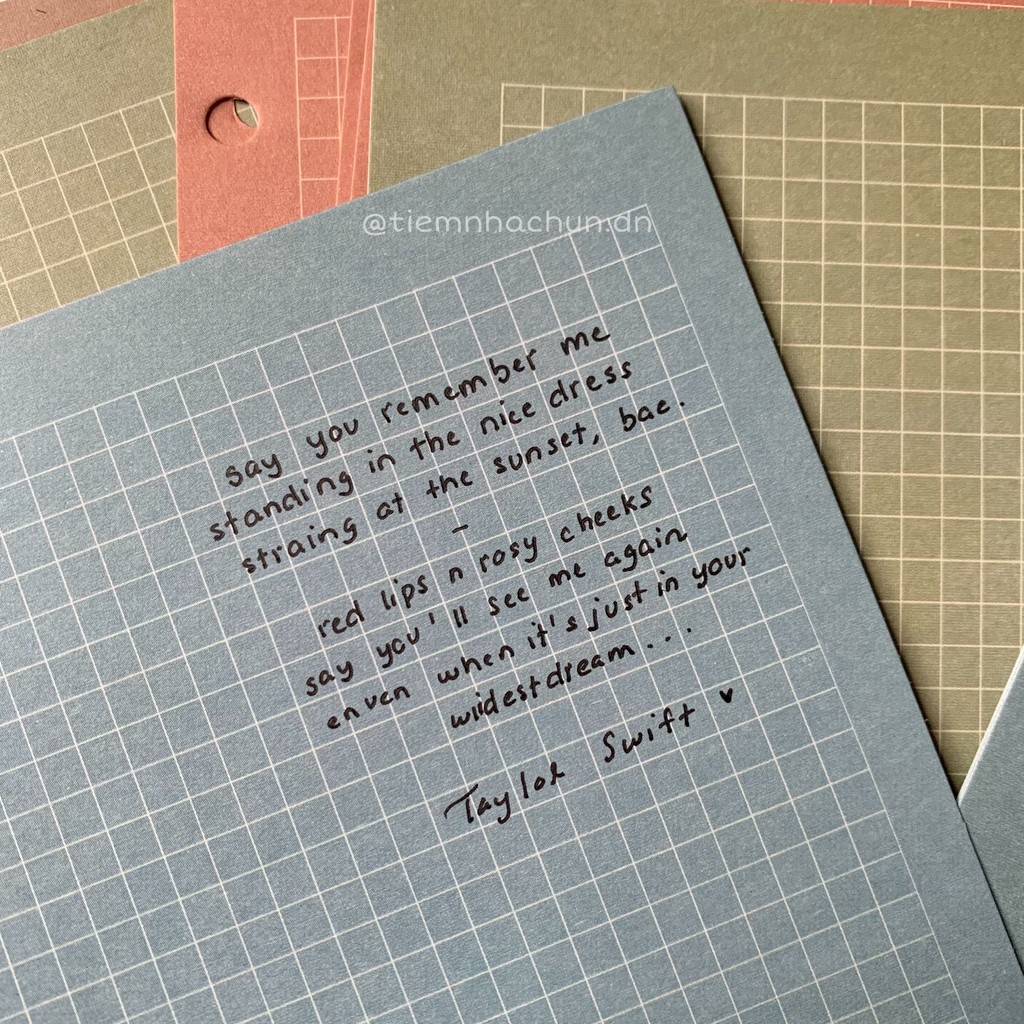 @tiemnhachun.dn
say you remember me
standing in the nice dress
straing at the sunset, bae.
-
red lips n rosy cheeks
say you'll see me again
enven when it's just in your
wildest dream...
Taylor Swift ♥